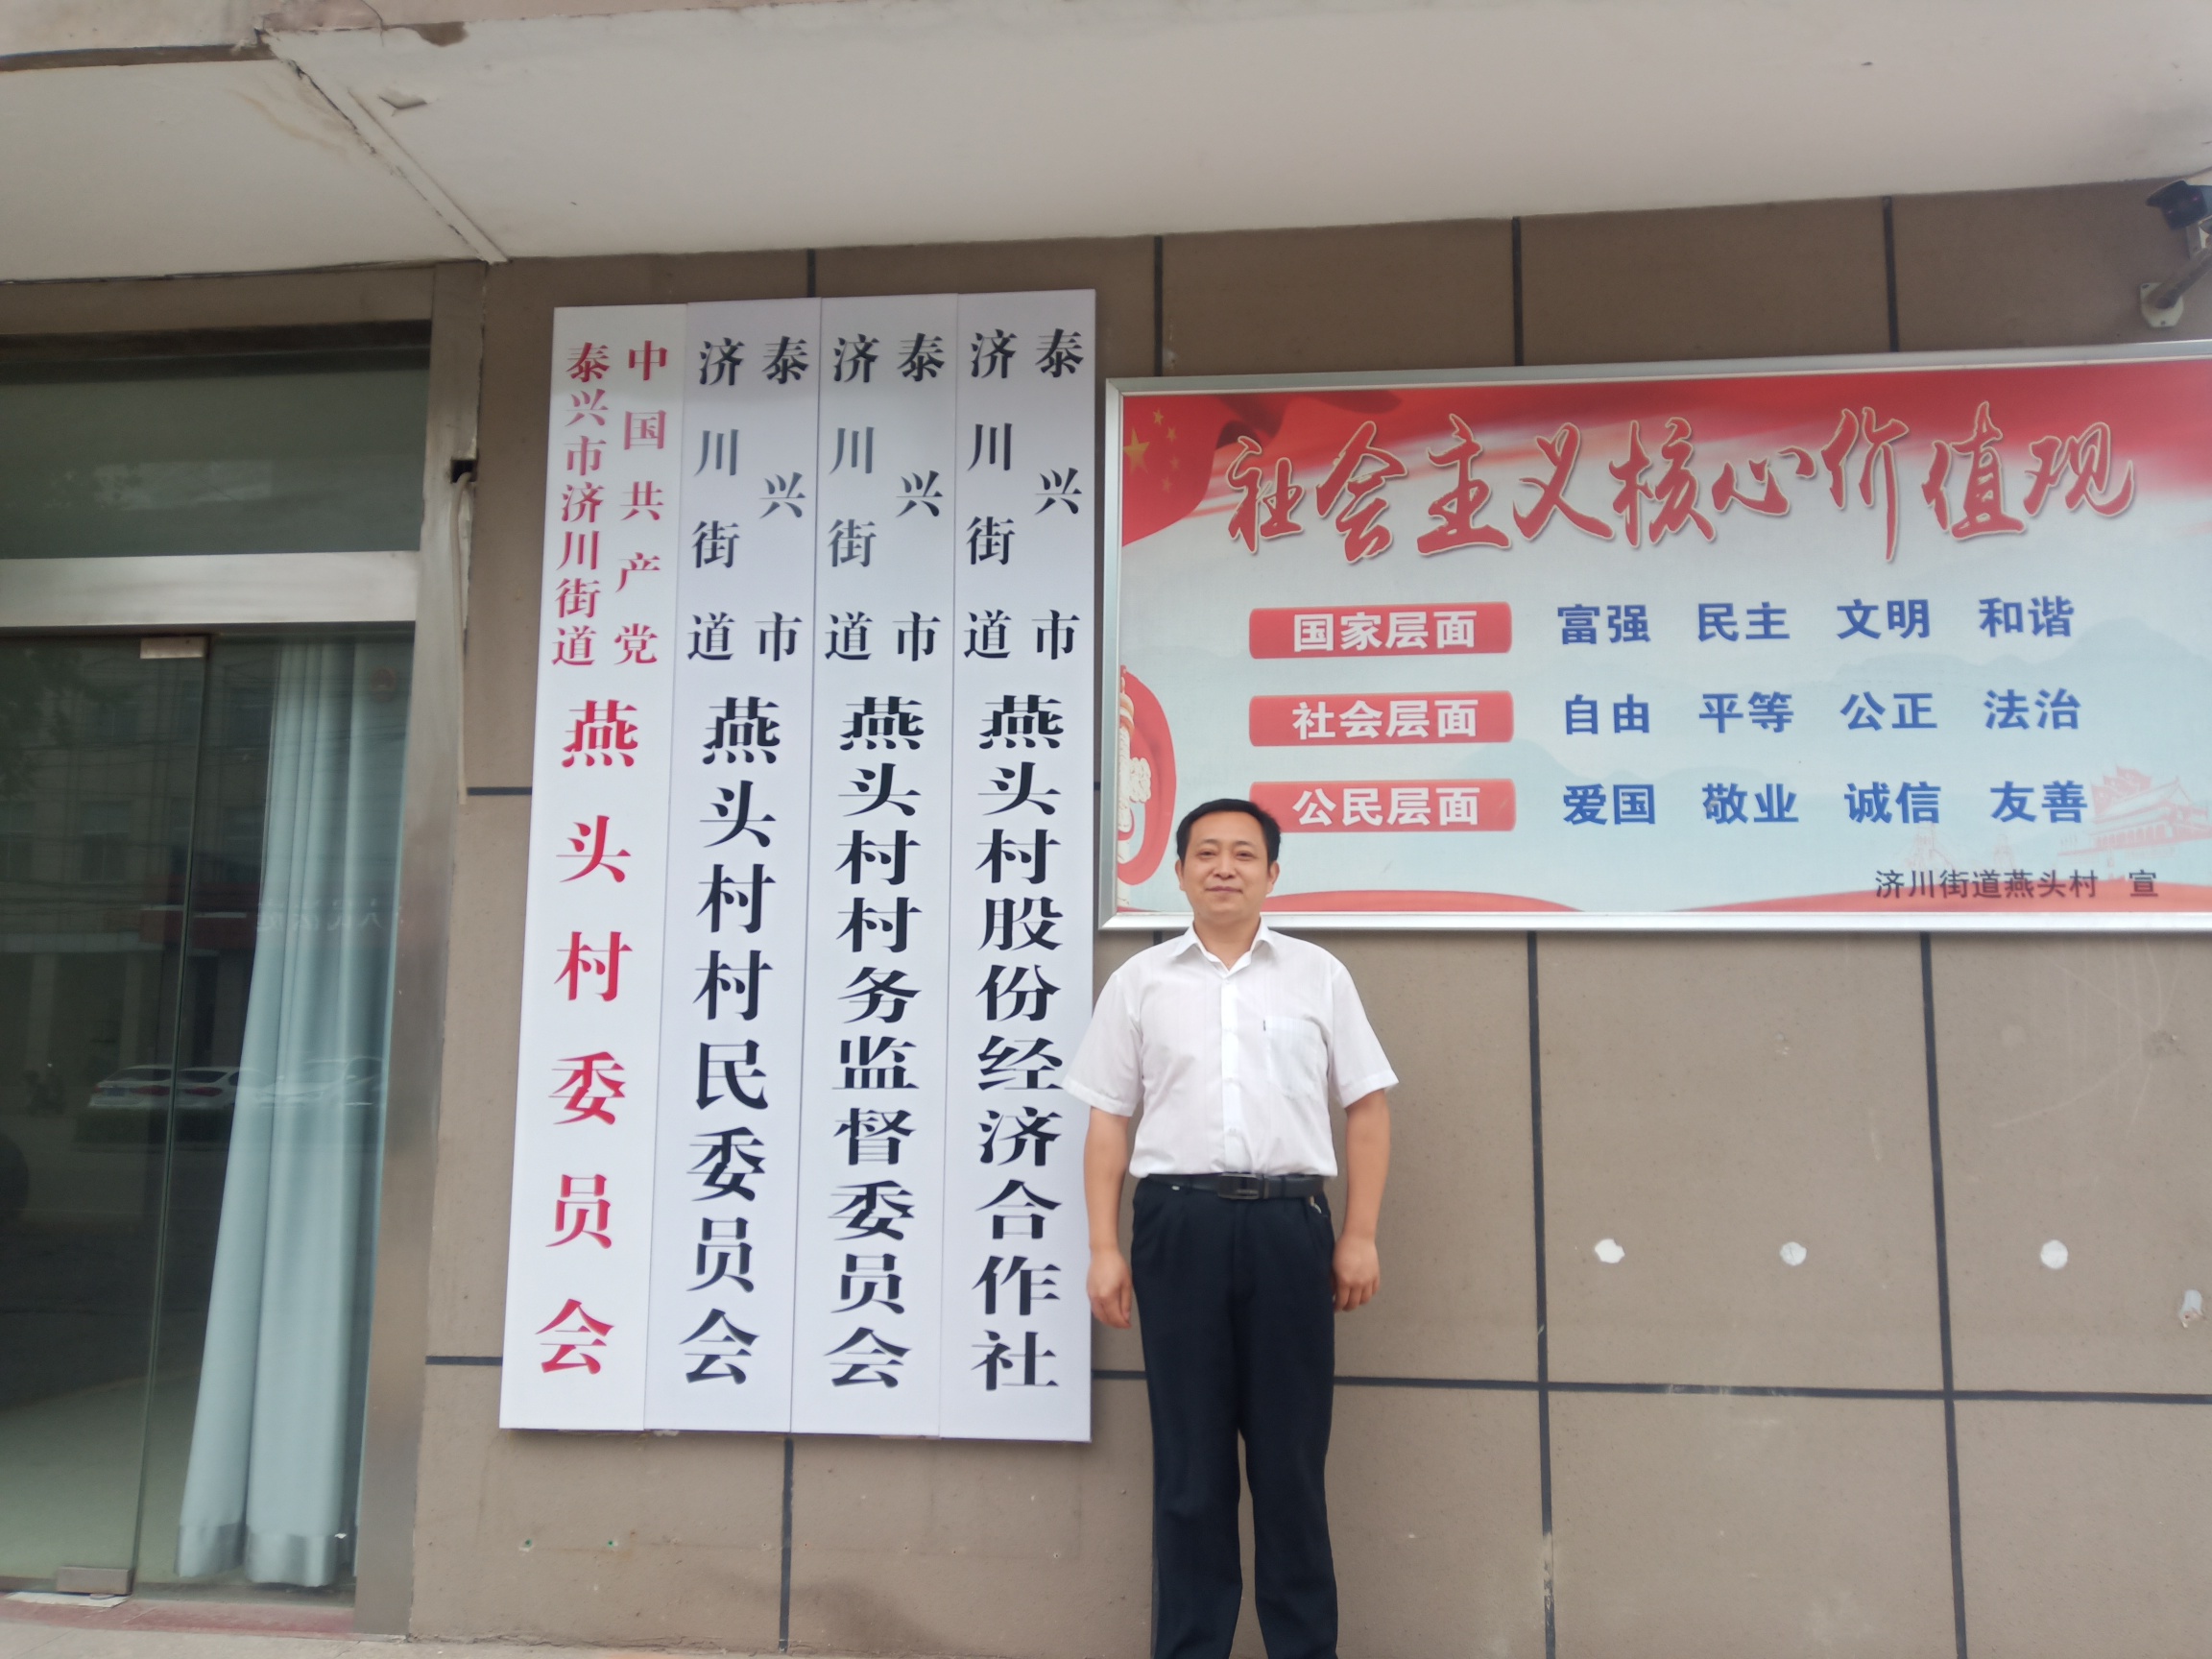 中国共产党
泰兴市济川街道
燕头村委员会
泰兴市
济川街道
燕头村村民委员会
泰兴市
济川街道
燕头村村务监督委员会
泰兴市
济川街道
燕头村股份经济合作社
社会主义核心价值观
国家层面 富强 民主 文明 和谐
社会层面 自由 平等 公正 法治
公民层面 爱国 敬业 诚信 友善
济川街道燕头村 宣